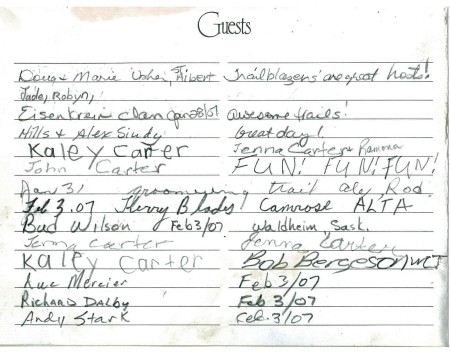 Guests
Doug & Marie Usher, Hibert Trailblazers are great hosts!
Jade, Robyn,
Eisentrein clan Jan 28/07 awesome trails!
Hills & Alex Sindy Great day!
Kaley Carter Jenna Carter & Ramona
John Carter FUN! FUN! FUN!
Jan 31 grooming trail Rod
Feb 3.07 Blades! Camrose ALTA
Bud Wilson Feb 3/07 Waldheim, Sask.
Jenna Carter Jenna Carter
Kaley Carter Bob Bergeson
Luc Mercier Feb 3/07
Richard Dalby Feb 3/07
Andy Stark Feb. 3/07